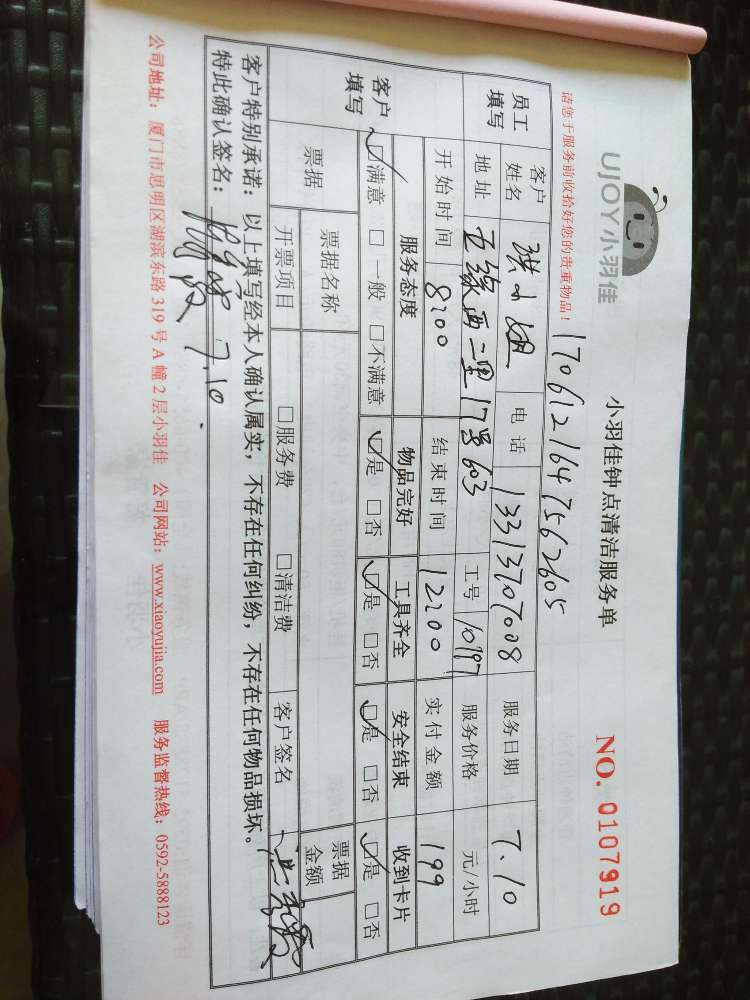 UJOY小羽佳
小羽佳钟点清洁服务单
NO. 0107919
请您于服务前收拾好您的贵重物品!
1706121647562605
员工填写 客户姓名 洪小姐 电话 13313707008 服务日期 7.10
地址 五缘西二里17号603 工号 10197 服务价格 元/小时
开始时间 8:00 结束时间 12:00 实付金额 199
客户填写 服务态度 物品完好 工具齐全 安全结束 收到卡片
☑满意 □一般 □不满意 ☑是 □否 ☑是 □否 ☑是 □否 ☑是 □否
票据 票据名称 票据金额
开票项目 □服务费 □清洁费 客户签名
客户特别承诺:以上填写经本人确认属实,不存在任何纠纷,不存在任何物品损坏。
特此确认签名: 7.10.
公司地址:厦门市思明区湖滨东路 319 号 A 幢 2 层小羽佳 公司网站:www.xiaoyujia.com 服务监督热线:0592-5888123